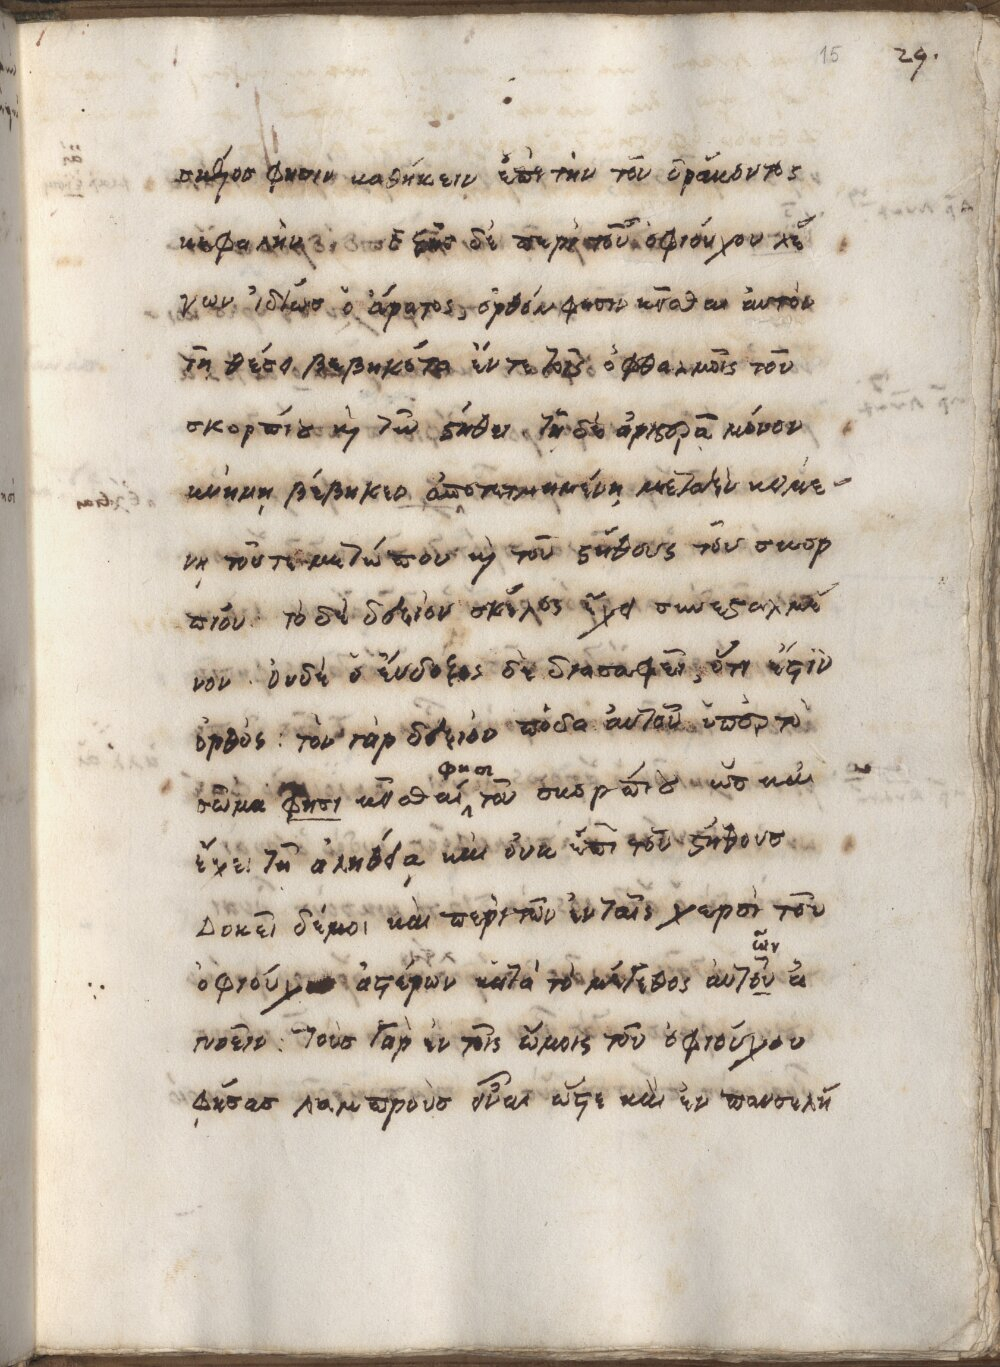 15 29.
στῆθος φησιν καθήκειν ἐπὶ τὴν τοῦ δράκοντος
κεφαλὴν. ἑξῆς δὲ περὶ τοῦ ὀφιούχου λέ
γων ἰδίως ὁ ἄρατος, ὀρθόν φησιν κεῖσθαι αὐτὸν
τῇ θέσει βεβηκότα ἔν τε τοῖς ὀφθαλμοῖς τοῦ
σκορπίου καὶ τῶ στήθει τῇ δὲ ἀριστερᾷ μόνον
κνήμῃ βέβηκεν μεταξὺ κειμέ-
νῃ τοῦ τε μετώπου καὶ τοῦ στήθους τοῦ σκορ
πίου. τὸ δὲ δεξιὸν σκέλος ἔχει συνεσταλμέ
νον. οὐδὲ ὁ εὔδοξος δὲ διασαφεῖ, ὅτι ἐστὶν
ὀρθός. τὸν γὰρ δεξιὸν πόδα αὐτοῦ ὑπὲρ τὸ
φησι
σῶμα φησι κεῖσθαι τοῦ σκορπίου ὡς καὶ
ἔχει τῇ ἀληθείᾳ καὶ οὐκ ἐπὶ τοῦ στήθους
Δοκεῖ δέ μοι καὶ περὶ τῶν ἐν ταῖς χερσὶ τοῦ
ῶν
ὀφιούχου ἀστέρων κατὰ τὸ μέγεθος αὐτοῦ ἀ
γνοεῖν. τοὺς γὰρ ἐν τοῖς ὤμοις τοῦ ὀφιούχου
φήσας λαμπροὺς εἶναι ὥστε καὶ ἐν πανσελή